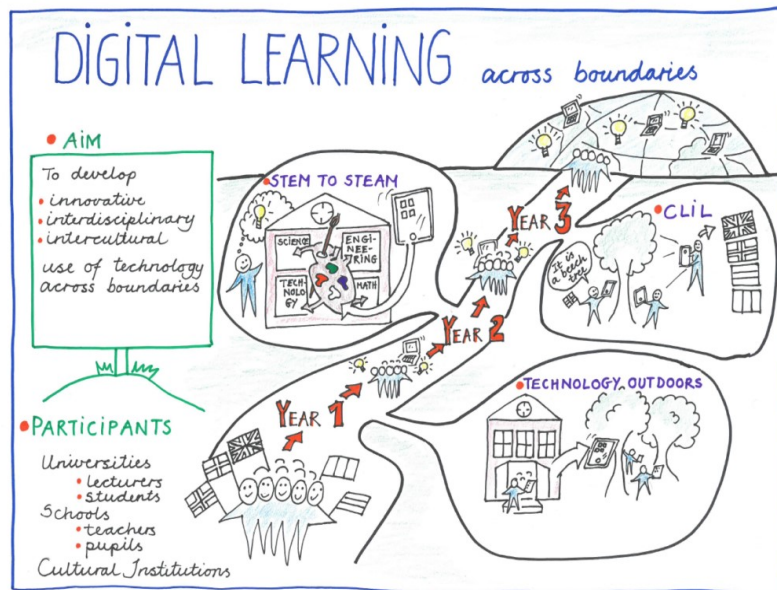 DIGITAL LEARNING across boundaries
AIM
To develop
innovative
interdisciplinary
intercultural
use of technology
across boundaries
PARTICIPANTS
Universities
lecturers
students
Schools
teachers
pupils
Cultural Institutions
YEAR 1
TECHNOLOGY OUTDOORS
YEAR 2
STEM TO STEAM
SCIENCE
ENGI-
NEE-
RING
TECH-
NOLO
GY
MATH
YEAR 3
CLIL
It is
a beech
tree